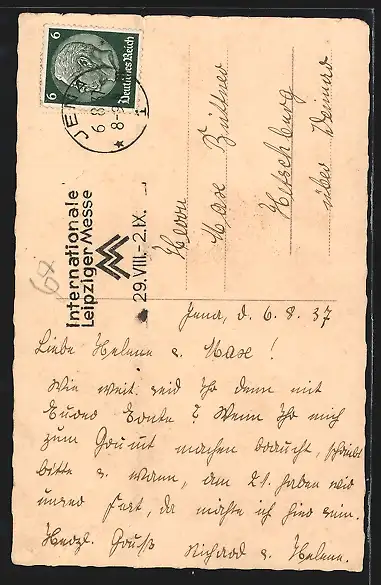 6 6
Deutsches Reich
JENA
6.8.
8-9
1
Internationale
Leipziger Messe
29. VIII.-2. IX.
68
Herrn
Max Büttner
Hetschburg
über Weimar
Jena, d. 6. 8. 37
Liebe Helene u. Max!
Wie weit seid Ihr denn mit
Eurer Ernte? Wenn Ihr mich
zum machen braucht, schreibt
bitte u. wann, am 21. haben wir
unser Fest, da möchte ich hier sein.
Herzl. Gruß Richard u. Helene.